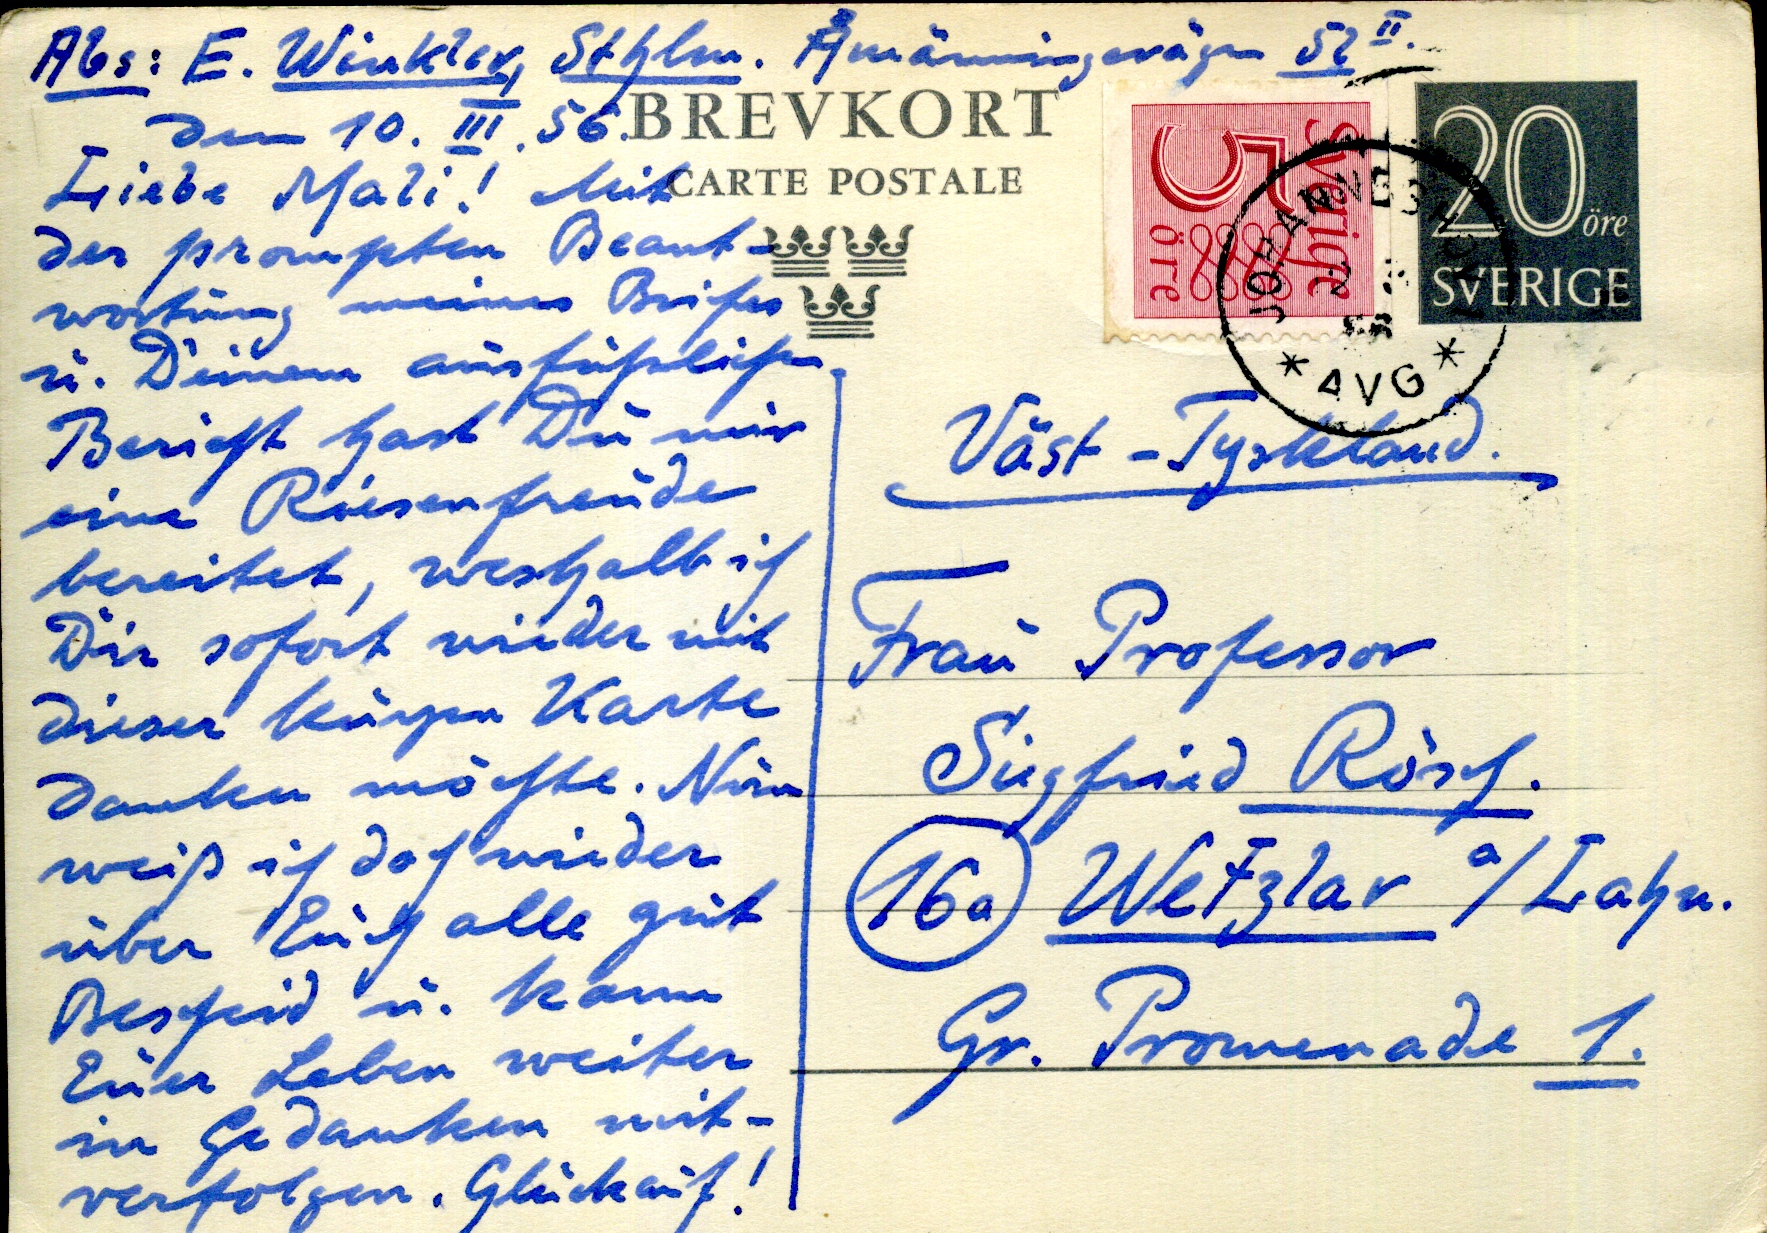 Abs: E. Winkler, Sthlm. Åmänningevägen 52 II.
den 10. III. 56.
BREVKORT
CARTE POSTALE
Sverige
5
öre
20 öre
SVERIGE
JOHANNESHOV 1
56
* AVG *
Liebe Mali! Mit
der prompten Beant-
wortung meines Briefes
u. Deinem ausführlichen
Bericht hast Du mir
eine Riesenfreude
bereitet, weshalb ich
Dir sofort wieder mit
dieser kurzen Karte
danken möchte. Nun
weiß ich doch wieder
über Euch alle gut
Bescheid u. kann
Euer Leben weiter
in Gedanken mit-
verfolgen. Glückauf!
Väst-Tyskland.
Frau Professor
Siegfried Rösch.
16a Wetzlar a/Lahn.
Gr. Promenade 1.